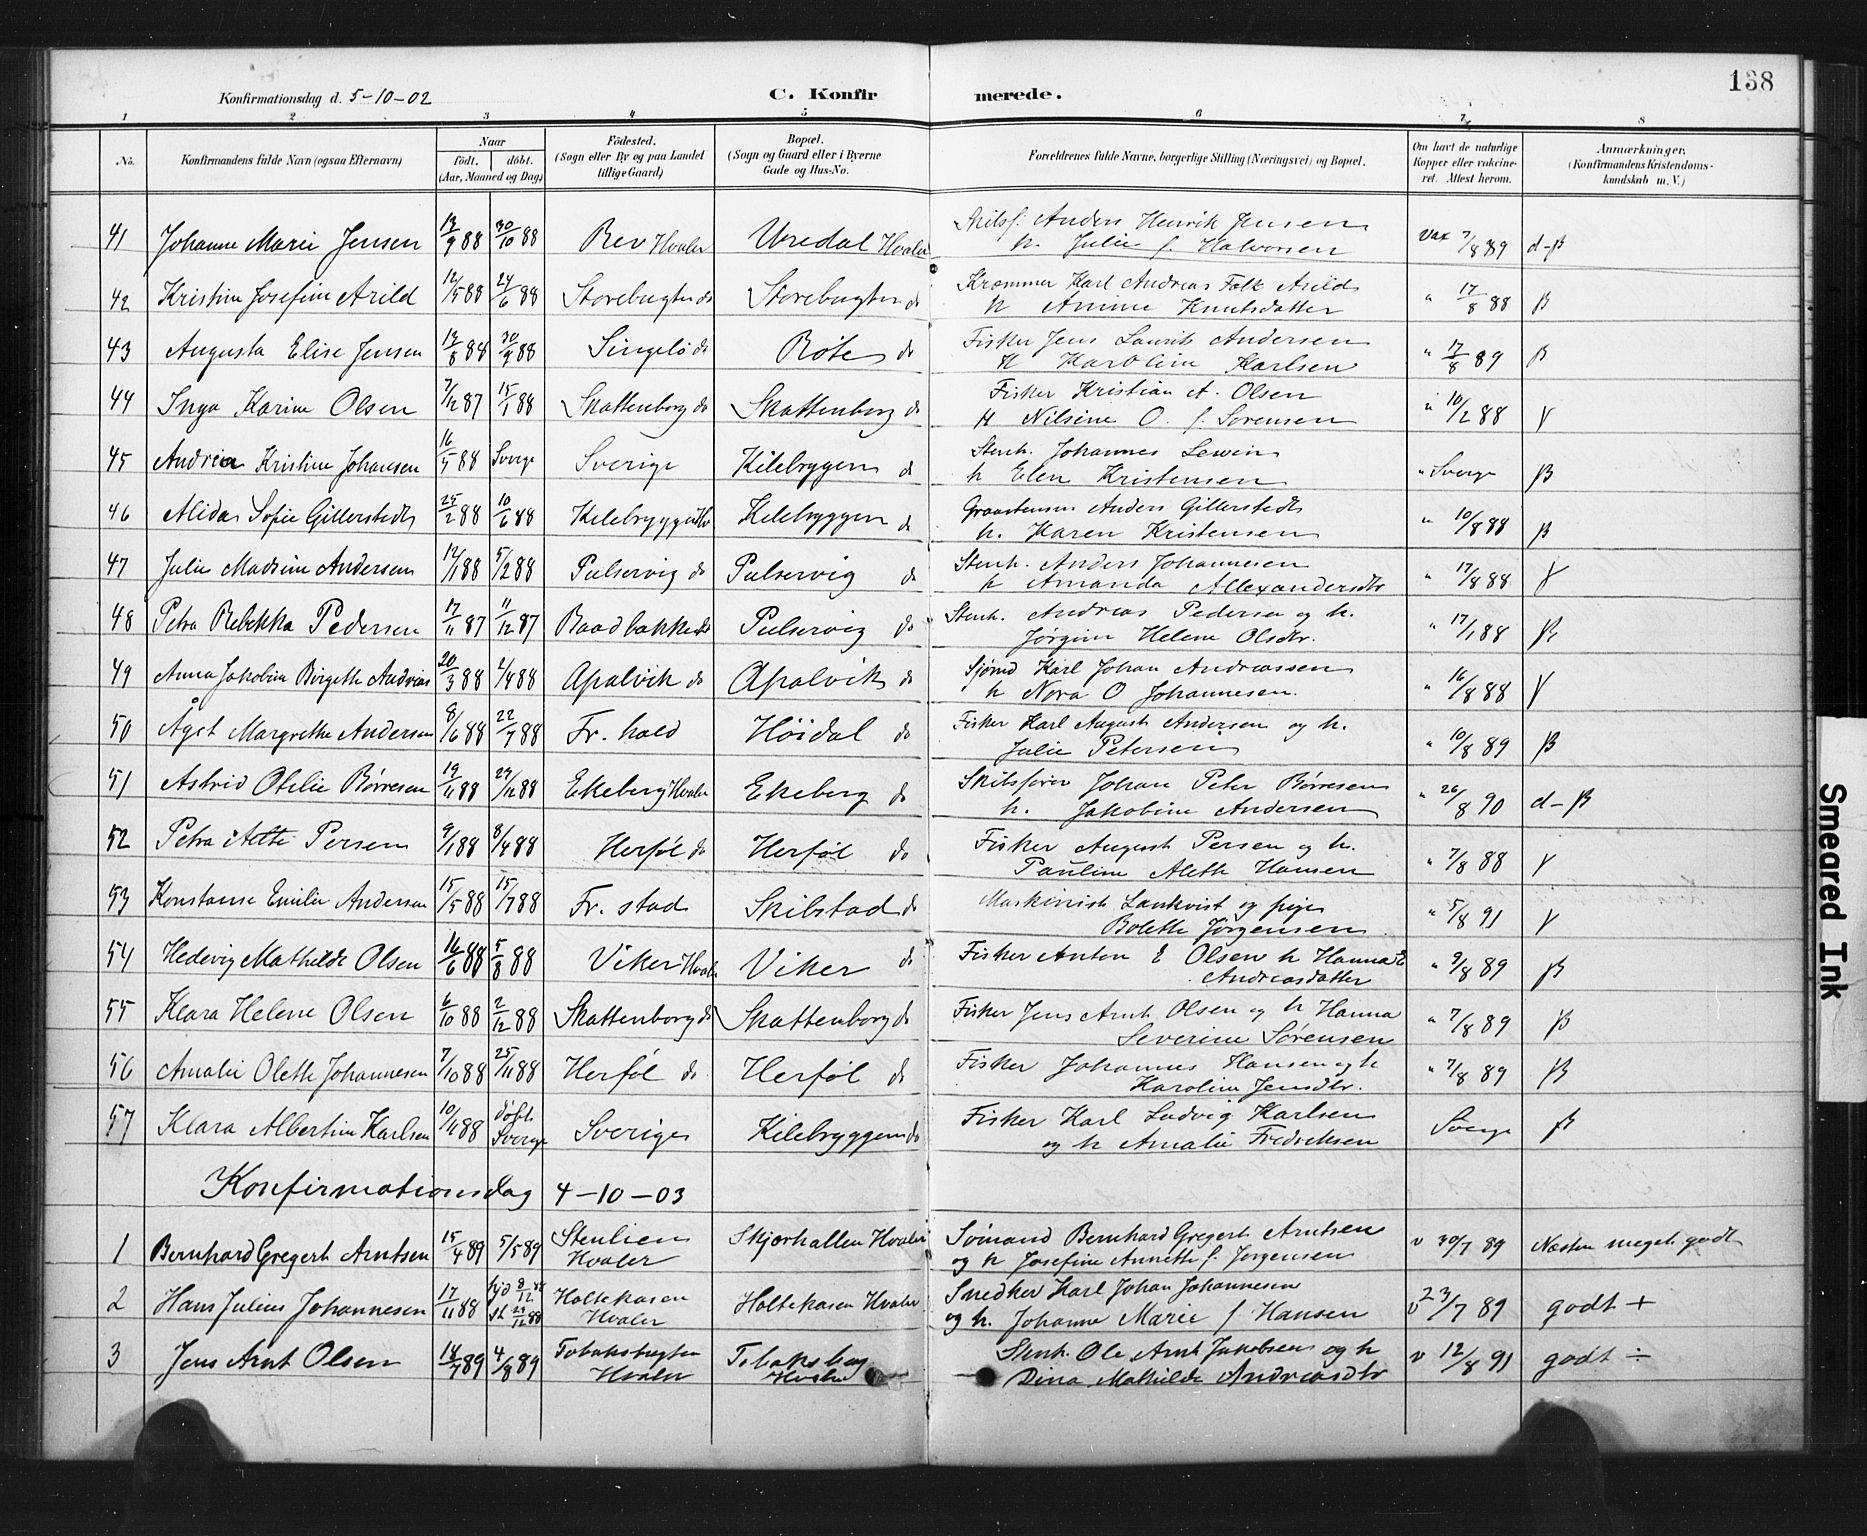 138
Konfirmationsdag d. 5-10-02 C. Konfir merede.
1 2 3 4 5 6 7 8
No. Konfirmandens fulde Navn (ogsaa Efternavn) Naar födt. döbt. (Aar, Maaned og Dag) Födested. (Sogn eller By og paa Landet tillige Gaard) Bopæl. (Sogn og Gaard eller i Byerne Gade og Hus-No. Forældrenes fulde Navne, borgerlige Stilling (Næringsvei) og Bopæl. Om havt de naturlige Kopper eller vakcineret. Attest herom. Anmerkninger. (Konfirmandens Kristendomskundskab m. V.)
41 Johanne Marie Jensen 13/9 88 30/10 88 Rev Hvaler Uredal Hvaler Skibsf. Anders Henrik Jensen
h. Julie f. Halvorsen Vax 7/8 89 d-ß
42 Kristine Josefine Arild 12/5 88 24/6 88 Storebugten do Storebugten do Kræmmer Karl Andreas Falk Arild
h Annine Knutsdatter " 17/8 88 ß
43 Augusta Elise Jensen 13/8 88 30/9 88 Singelö do Röte do Fisker Jens Laurits Andersen
H Karoline Karlsen " 17/8 89 ß
44 Inga Karine Olsen 7/12 87 15/1 88 Skattenborg do Skattenborg do Fisker Kristian A. Olsen
H Nilsine O. f. Sørensen " 10/2 88 V
45 Andrea Kristine Johansen 16/5 88 Sverge Sverige Kilebryggen do Stenh. Johannes Lewin
h Elen Kristensen " Sverge ß
46 Alida Sofie Gillerstedt 25/2 88 10/6 88 Kilebryggen Hv Kilebryggen do Graastensm Anders Gillerstedt
h. Karen Kristensen " 10/8 88 ß
47 Julie Madsine Andersen 12/1 88 5/2 88 Pulservig do Pulservig do Stenh. Anders Johannesen
h Amanda Allexandersdtr " 17/8 88 V
48 Petra Rebekka Pedersen 17/11 87 11/12 87 Baadbakken do Pulservig do Stenh. Andreas Pedersen og h.
Jørgine Helene Olsdtr. " 17/1 88 ß
49 Anna Jakobine Birgette Andreas 20/3 88 1/4 88 Apalvik do Apalvik do Sjømd Karl Johan Andreassen
h Nora O Johannesen. " 16/8 88 V
50 Ågot Margrethe Andersen 8/6 88 22/7 88 Fr. hald Høidal do Fisker Karl August Andersen og h.
Julie Petersen " 10/8 89 ß
51 Astrid Otelie Børresen 19/11 88 29/12 88 Ekeberg Hvaler Ekeberg do Skibsfører Johan Peter Børresen
h. Jakobine Andersen " 26/8 90 d-ß
52 Petra Alette Persen 9/1 88 8/4 88 Herføl do Herføl do Fisker August Persen og h.
Pauline Aleth Hansen " 7/8 88 V
53 Konstanse Emilie Andersen 15/5 88 15/7 88 Fr. stad Skibstad do Maskinist Lankvist og pige
Bolette Jørgensen " 5/8 91 V
54 Hedevig Mathilde Olsen 16/6 88 5/8 88 Viker Hvaler Viker do Fisker Anton E Olsen h Hanna E
Andreasdatter " 9/8 89 ß
55 Klara Helene Olsen 6/10 88 2/12 88 Skattenborg do Skattenborg do Fisker Jens Arnt Olsen og h Hanna
Severine Sørensen " 7/8 89 ß
56 Amalie Olette Johannesen 7/10 88 25/11 88 Herføl do Herføl do Fisker Johannes Hansen og h
Karoline Jensdtr. " 7/8 89 ß
57 Klara Albertine Karlsen 10/11 88 döbt Sverge Sverige Kilebryggen do Fisker Karl Ludvig Karlsen
og h Amalie Fredriksen Sverge ß
Konfirmationsdag 4-10-03
1 Bernhard Gregert Arntsen 15/4 89 5/5 89 Stenlien Hvaler Skjærhallen Hvaler Sømand Bernhard Gregert Arntsen
og h Josefine Annette f. Jørgensen v 30/7 89 Næsten meget godt
2 Hans Julius Johannesen 17/11 88 hjd 8/12 88 st 29/12 88 Holtekasen Hvaler Holtekasen Hvaler Snedker Karl Johan Johannesen
og h. Johanne Marie f Hansen v 23/7 89 godt +
3 Jens Arnt Olsen 14/7 89 4/8 89 Tobaksbugten Hvaler Tobaksbug Hvaler Stenh. Ole Arnt Jakobsen og h
Dina Mathilde Andreasdtr v 12/8 91 godt ÷
Smeared Ink